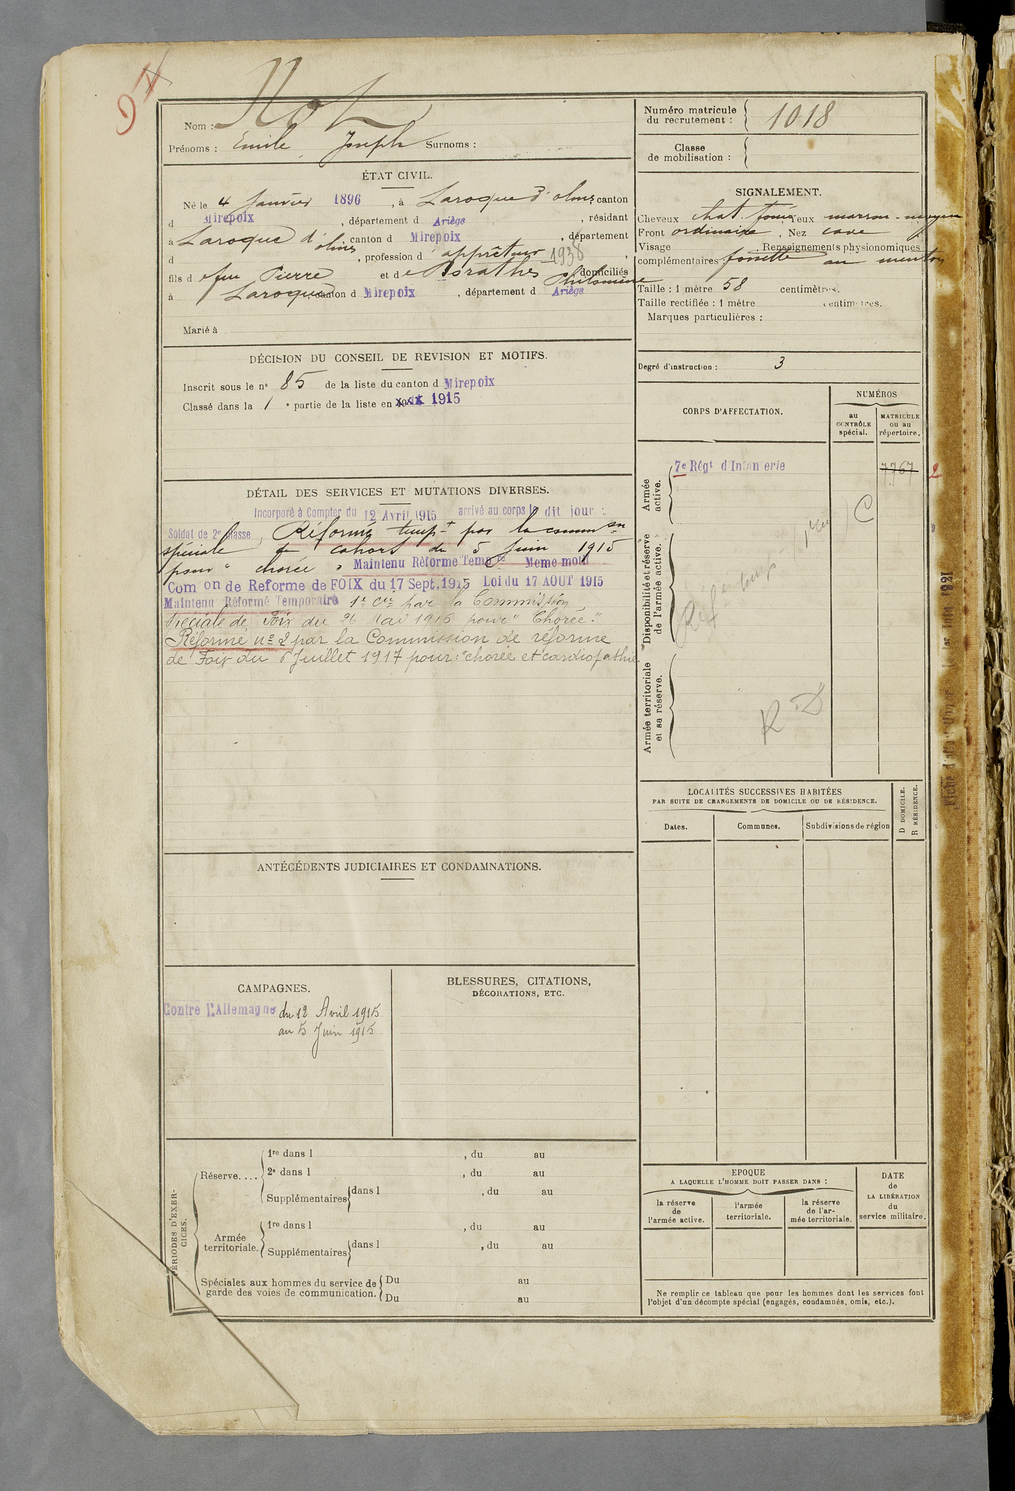 94
Nom : Not
Prénoms : Emile Joseph Surnoms :
Numéro matricule du recrutement : 1018
Classe de mobilisation :
ÉTAT CIVIL.
Né le 4 Janvier 1896, à Laroque d'olmes canton
d Mirepoix, département d Ariège, résidant
à Laroque d'olmes canton d Mirepoix, département
d , profession d'apprêteur 1938,
fils d e feu Pierre et d e Philomène domiciliés
à Laroque canton d Mirepoix, département d Ariège
Marié à
SIGNALEMENT.
Cheveux chat. foncé yeux marron-moyen
Front ordinaire, Nez cave
Visage . Renseignements physionomiques
complémentaires fossette au menton
Taille : 1 mètre 58 centimètres.
Taille rectifiée : 1 mètre centimètres.
Marques particulières :
Degré d'instruction : 3
DÉCISION DU CONSEIL DE REVISION ET MOTIFS.
Inscrit sous le n° 85 de la liste du canton d Mirepoix
Classé dans la 1e partie de la liste en 1915
CORPS D'AFFECTATION.
NUMÉROS
au CONTRÔLE spécial.
MATRICULE ou au répertoire.
Armée active.
7e Régt d'Infanterie
7767
C
Disponibilité et réserve de l'armée active.
Armée territoriale et sa réserve.
R.D
DÉTAIL DES SERVICES ET MUTATIONS DIVERSES.
Incorporé à Compter du 12 Avril 1915 arrivé au corps le dit jour :
Soldat de 2e classe, Réformé tempre par la commson
spéciale de cahors du 5 Juin 1915
pour "choree" Maintenu Réformé Temre Meme motif
Comon de Reforme de FOIX du 17 Sept. 1915 Loi du 17 AOUT 1915
Maintenu Réformé Temporaire 1e Cie par la Commission
Speciale de Foix du 26 Mai 1916 pour "Chorée."
Réformé no 2 par la Commission de réforme
de Foix du 6 Juillet 1917 pour : "chorée et cardiopathie"
LOCALITÉS SUCCESSIVES HABITÉES
PAR SUITE DE CHANGEMENTS DE DOMICILE OU DE RÉSIDENCE.
Dates.
Communes.
Subdivisions de région
D DOMICILE.
R RÉSIDENCE.
ANTÉCÉDENTS JUDICIAIRES ET CONDAMNATIONS.
CAMPAGNES.
Contre l'Allemagne du 12 Avril 1915
au 5 Juin 1915
BLESSURES, CITATIONS,
DÉCORATIONS, ETC.
PÉRIODES D'EXERCICES.
Réserve....
1re dans l , du au
2e dans l , du au
Supplémentaires dans l , du au
Armée territoriale.
1re dans l , du au
Supplémentaires dans l , du au
Spéciales aux hommes du service de garde des voies de communication.
Du au
Du au
EPOQUE
A LAQUELLE L'HOMME DOIT PASSER DANS :
la réserve de l'armée active.
l'armée territoriale.
la réserve de l'armée territoriale.
DATE de LA LIBÉRATION du service militaire.
Ne remplir ce tableau que pour les hommes dont les services font
l'objet d'un décompte spécial (engagés, condamnés, omis, etc.).